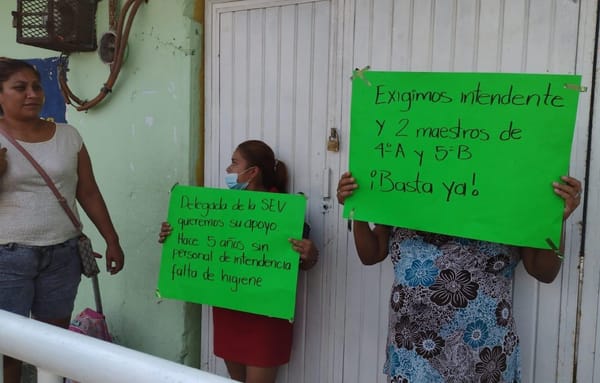 Delegada de la SEV
queremos su apoyo
Hace 5 años sin
personal de intendencia
falta de higiene
Exigimos intendente
y 2 maestros de
4ºA y 5ºB
¡Basta ya!